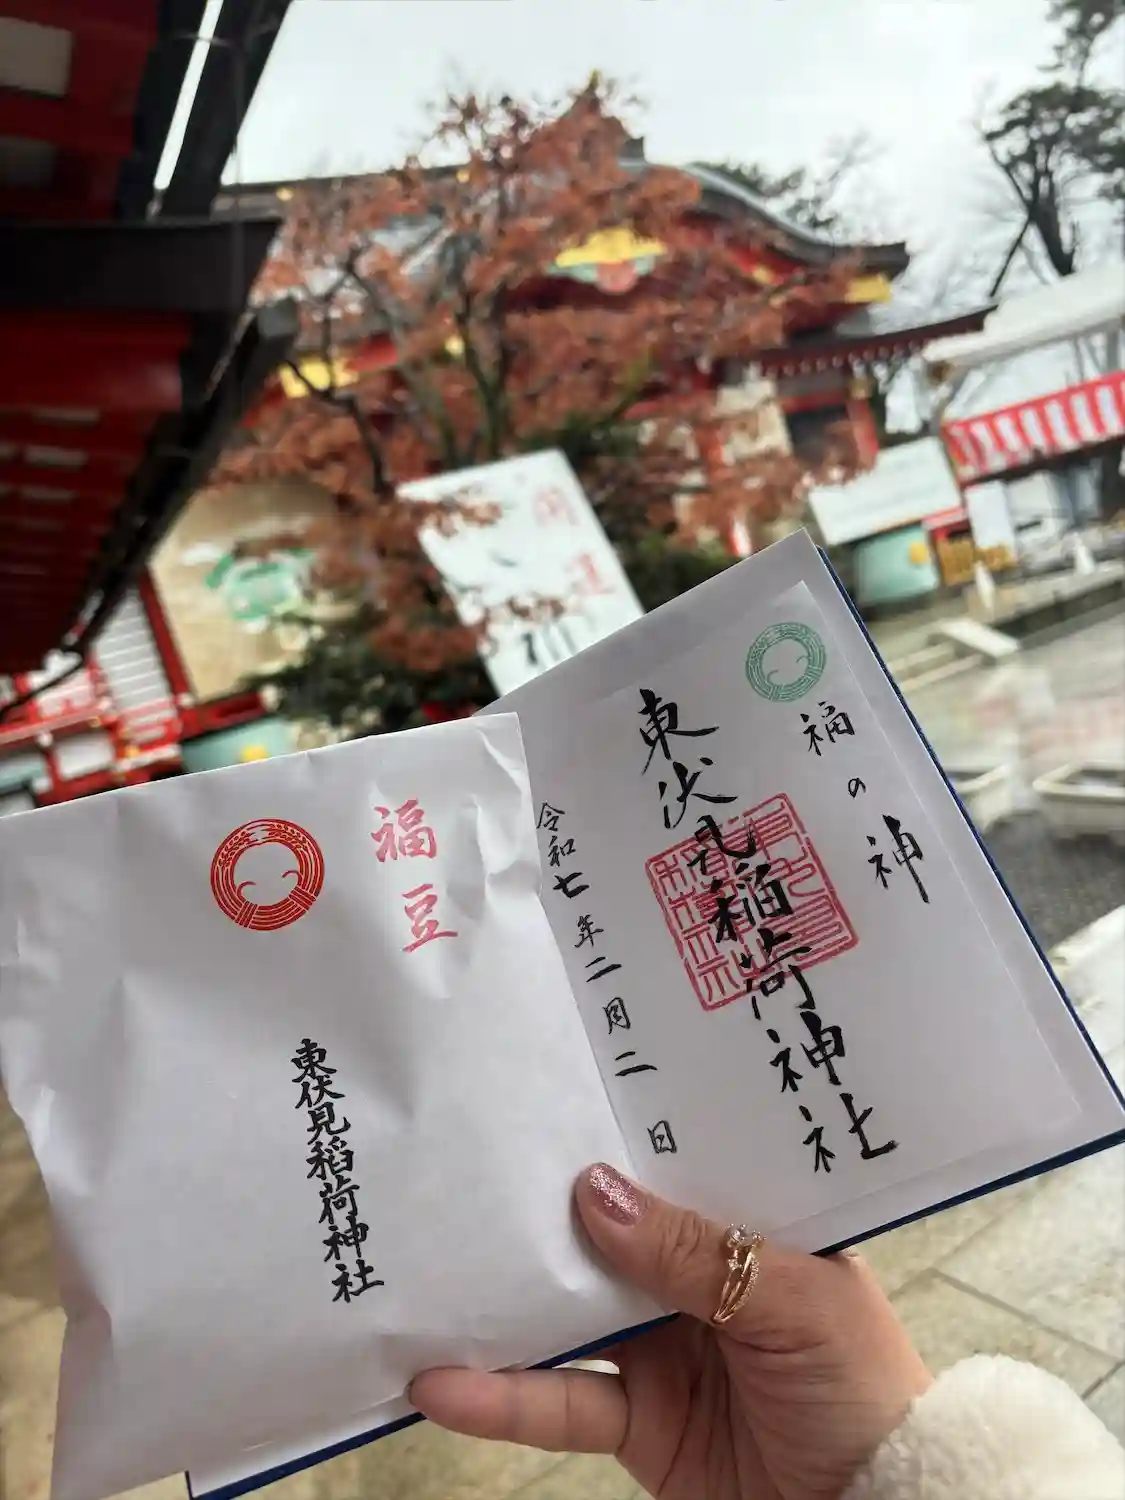 福の神
東伏見稲荷神社
令和七年二月二日
福豆
東伏見稲荷神社
開運